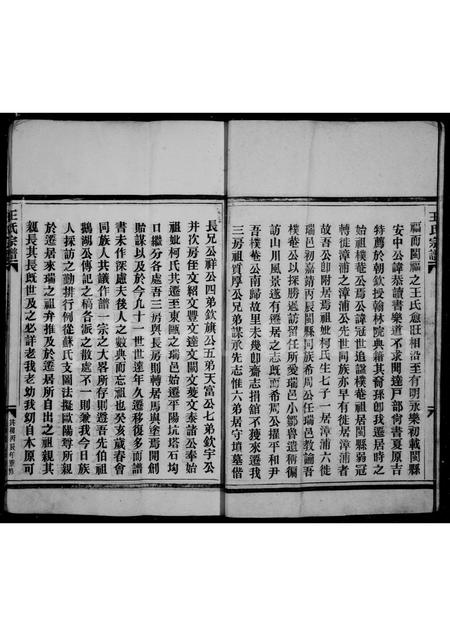 王氏宗譜
福而閩閩縣之王氏愈旺相沿至有明永樂初載閩縣
安中公諱恭讀書樂道不求聞達戶部尚書夏原吉
特薦於朝欽授翰林院典籍其裔孫卽我遷居時之
始祖樸菴公焉公諱冠世追諡樸菴祖居閩縣弱冠
轉徙漳浦之漳浦公先世同族亦早有徙居漳浦者
故吾公卽附居焉祖妣柯氏生七子一居漳浦六徙
瑞邑初嘉靖丙辰閩縣同族希周公任瑞邑教諭吾
樸菴公以探勝處訪留任所愛瑞邑小鄒魯遺禆徧
訪山川風景遂有遷居之志旣而希周公擢平和尹
吾樸菴公南歸故里未幾卽齎志捐館不獲來遷我
三房祖質厚公兄弟謀承先志惟六弟居守墳墓偕
長兄公祥公四弟欽旗公五弟天富公七弟欽宇公
并次房侄文紹文豐文達文闊文蓌文泰諸公奉始
祖妣柯氏共遷至東甌之瑞邑始遷平陽坑塔石均
口繼分各處吾三房與長房則轉居馬與塗焉開創
貽謀以及於今九十一世世達年久遷移復多而譜
書未作深慮夫後人之數典而忘祖也癸亥歲春會
同族人共議作譜一宗之大畧所存則遵吾先伯祖
鵝湖公傳記之稿各派之散處不一則兼我今日族
人採訪之勤排行例從蘇氏支圖法擬歐陽尊所親
於遷居來瑞之祖弁推及於遷居所自出之祖親其
親長其長旣世及之必詳老我老幼我幼自本原可
王氏宗譜